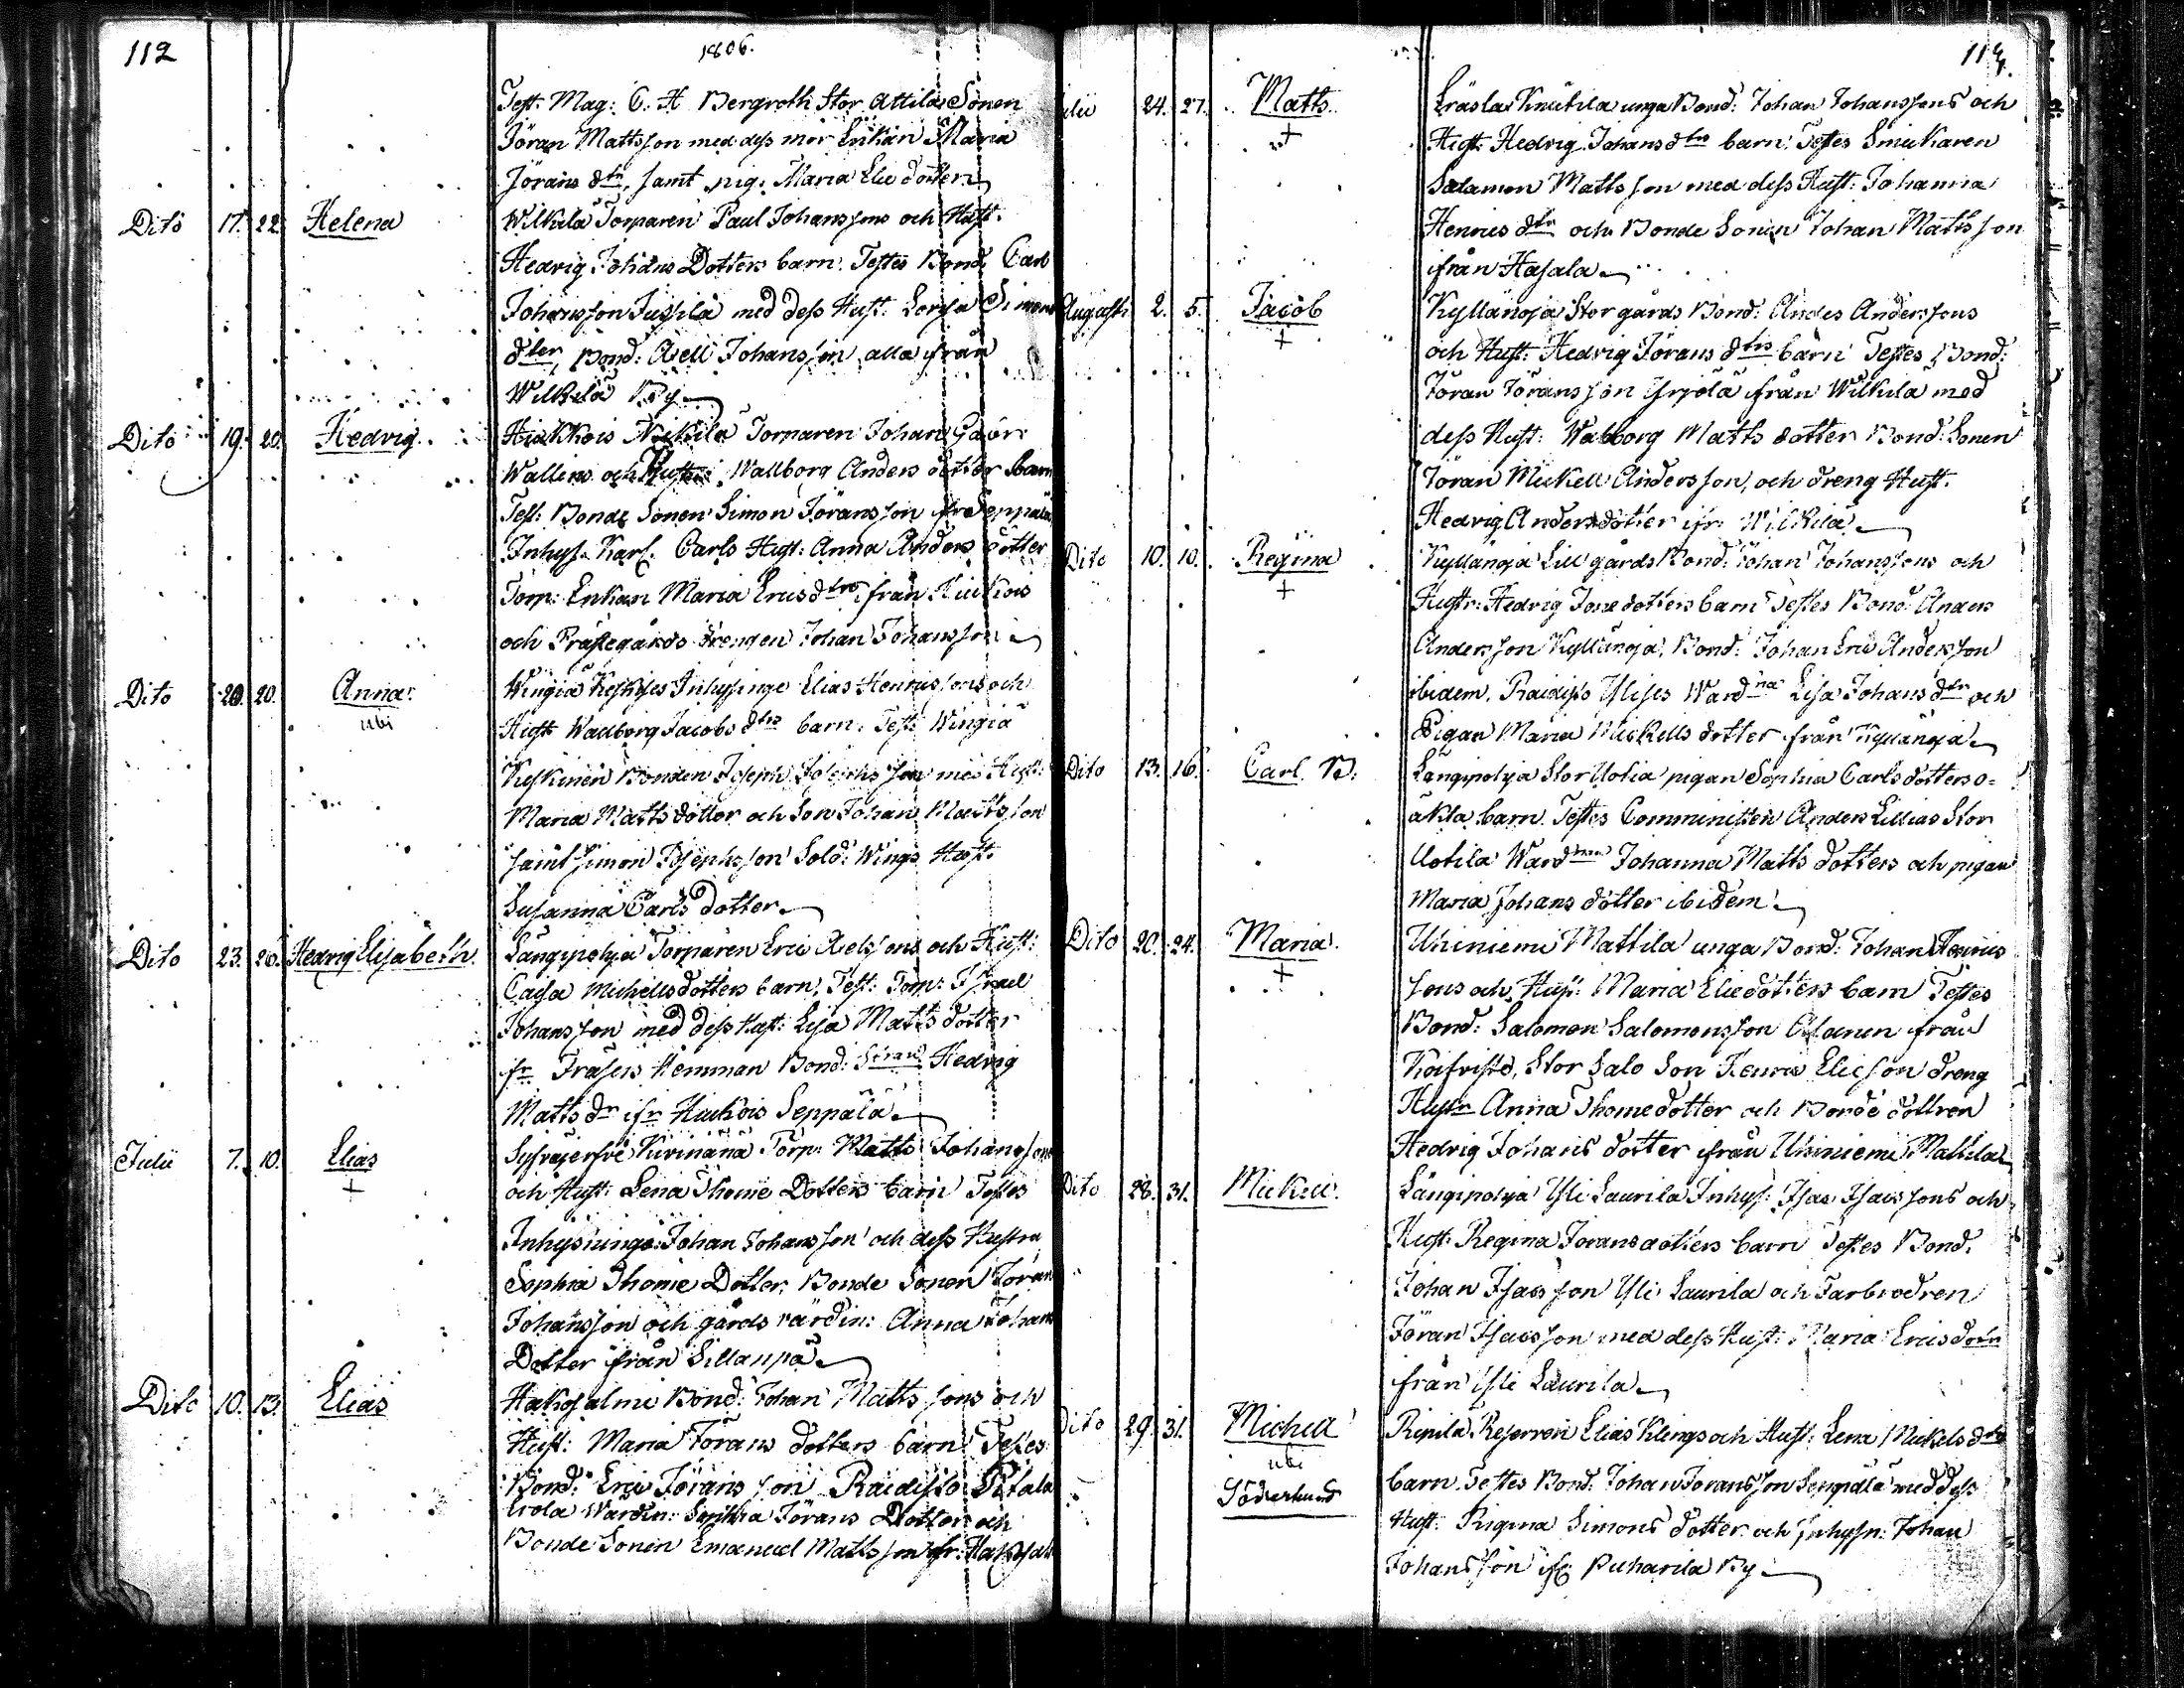 112
1806.
Test. Mag: C. A Bergroth Stor Attila Sonen
Jöran Mattsson med dess mor Enkan Maria
Jörans dtr, samt pig: Maria Elie dotter
Dito 17. 22. Helena Wilkila Torparen Paul Johanssons och Hust.
Hedvig Johans Dotters barn. Testes Bond. Carl
Johansson Jussila med dess Hust. Lovisa Simons
dter, Bond: Axell Johansson alla ifrån
Wilkila By
Dito 19. 20. Hedvig. Hiukkois Torparen Johan
Wallins och Hustr: Wallborg Anders dotter barn
Test: Bonde Sonen Simon Jöransson
Inhys. Karl. Carls Hust: Anna Anders dotter
Torp: Enkan Maria Erics dtr ifrån Hiukois
och Prästegårds drengen Johan Johansson
Dito 20. 20. Anna. Wingiä Keskises Inhysinge Elias Henricssons och
ubi Hust. Wallborg Jacobs dtrs barn. Test: Wingiä
Keskinen Bonden Joseph Josephs son med Hust:
Maria Matts dotter och Son Johan Mattsson
samt Simon Josephsson Sold: Wings Hust.
Susanna Carls dotter
Dito 23. 26. Hedvig Elisabeth. Längipohja Torparen Eric Axelssons och Hust:
Caisa Michells dotters barn. Test: Torp: Israel
Johansson med dess Hust: Lisa Matts dotter
fr Hemman Bond: Hedvig
Matts dr ifr Hiukois Seppälä
Julii 7. 10. Elias Torp: Matts Johanssons
+ och Hust: Lena Thome Dotters barn Testes
Inhysninge: Johan Johansson och dess Hustru
Sophia Thome Dotter, Bonde Sonen Jöran
Johansson och gårds värdin: Anna Johans
Dotter ifrån Sillanpä
Dito 10. 13. Elias Hakosalmi Bond: Johan Matts sons och
Hust: Maria Jörans dotters barn Testes
Bond: Eric Jörans son Raidisto
Wärdin: Jörans Dotter och
Bonde Sonen Emanuel Mattsson fr: Hakosal
114.
Julii 24. 27. Matts. unga Bond: Johan Johanssons och
+ Hust: Hedvig Johans dtrs barn. Testes
Salomon Mattsson med dess Hust: Johanna
Henrics dtr och Bonde Sonen Johan Mattsson
ifrån Hasala
Augusti 2. 5. Jacob Kyllänoja Storgårds Bond: Anders Anderssons
+ och Hust: Hedvig Jörans dtrs barn Testes Bond:
Jöran Jöransson Yrjölä ifrån Wilkila med
dess Hust: Walborg Matts dotter Bond: Sonen
Jöran Mickell Andersson, och dreng Hust.
Hedvig Anders dotter ifr: Wilkila
Dito 10. 10. Regina Kyllänoja Lill gårds Bond: Johan Johanssons och
+ Hustr: Hedvig dotters barn Testes Bond Anders
Andersson Kyllänoja, Bond: Johan Eric Andersson
ibidem. Ward Lisa Johans dtr och
Pigan Maria Mickells dotter från Kyllänoja
Dito 13. 16. Carl. B. Längipohja Stor Uotila pigan Sophia Carls dotters o=
äkta barn. Testes Comministen Anders Lillias Stor
Uotila Ward Johanna Matts dotters och pigan
Maria Johans dotter ibidem
Dito 20. 24. Maria. Uhiniemi Mattila unga Bond: Johan Henrics
+ sons och Hust: Maria Elie dotters barn Testes
Bond: Salomon Salomonsson från
Koifvisto, Stor Salo Son Henric Elicson dreng
Hustr Anna Thome dotter och Bonde dottren
Hedvig Johans dotter ifrån Uhiniemi Mattila
Dito 28. 31. Mickell. Längipohja Yli Laurila Inhys: Isac Isacssons och
Hust: Regina Jörans dotters barn Testes Bond.
Johan Isacsson Yli Laurila och Farbrodren
Jöran Isacsson med dess Hust: Maria Erics dotr
från Yli Laurila
Dito 29. 31. Michell Reserven Elias Klings och Hust: Lena Mickels dtr
ubi barn. Testes Bond: Johan Jöransson Seppälä med dess
Söderlund Hust: Regina Simons dotter och Inhysn: Johan
Johansson ifr Puharila By